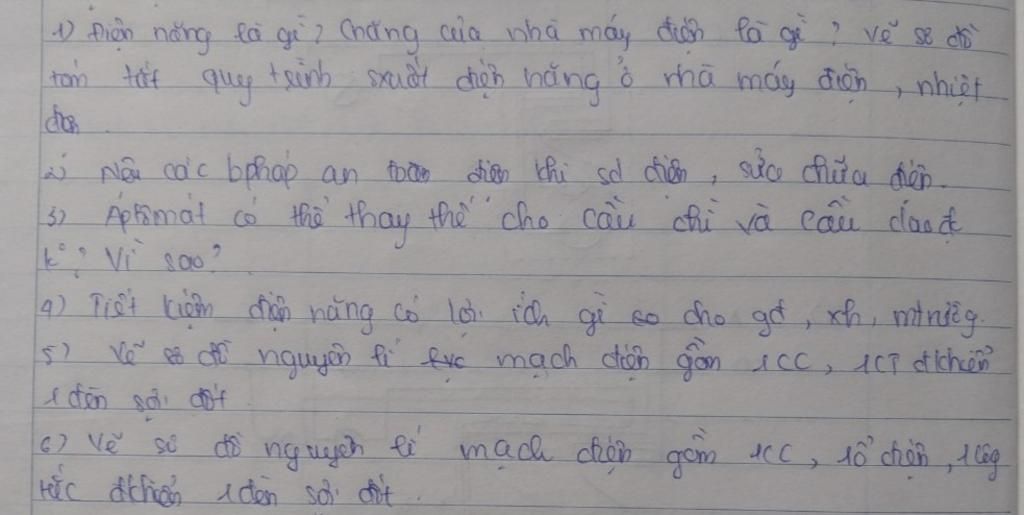 1) Điện năng là gì? Chức năng của nhà máy điện là gì? Vẽ sơ đồ
tóm tắt quy trình sxuất điện năng ở nhà máy điện, nhiệt
điện.
2) Nêu các bpháp an toàn điện khi sd điện, sửa chữa điện.
3) Áptômát có thể thay thế cho cầu chì và cầu dao đ
k°? Vì sao?
4) Tiết kiệm điện năng có lợi ích gì cho gđ, xh, mtrườg.
5) Vẽ sơ đồ nguyên lí mạch điện gồm 1CC, 1CT đkhiển
1 đèn sợi đốt
6) Vẽ sơ đồ nguyên lí mạch điện gồm 1CC, 1ổ điện, 1côg
tắc đkhiển 1 đèn sợi đốt.